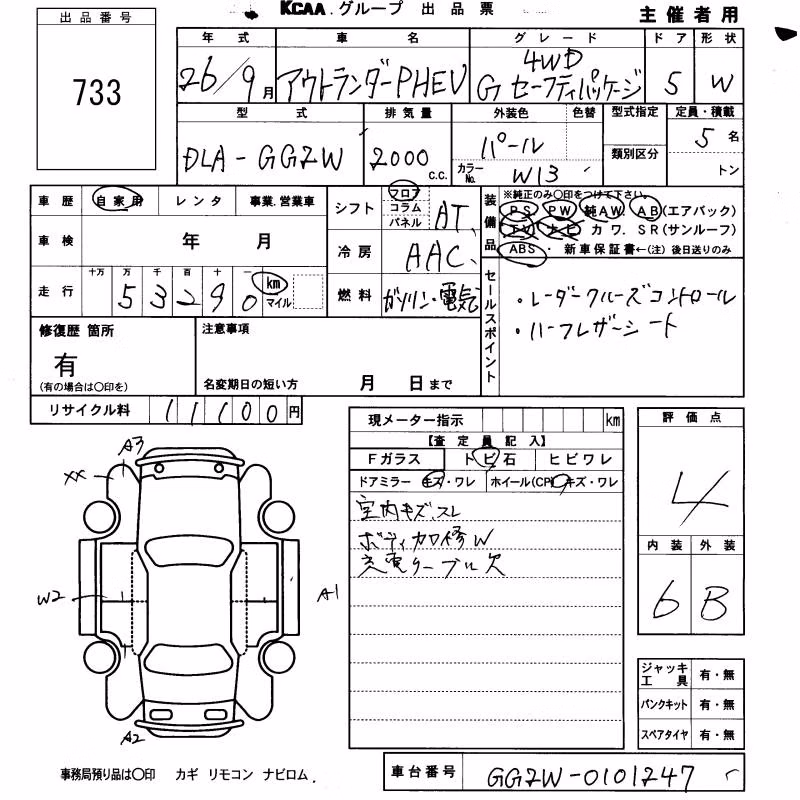 KCAA.グループ 出品票
主催者用
出品番号
733
年式 車名 グレード ドア 形状
26/9月 アウトランダーPHEV 4WD
Gセーフティパッケージ 5 W
型式 排気量 外装色 色替 型式指定 定員・積載
DLA-GG2W 2000 c.c. パール 類別区分 5名
カラーNo. W13 トン
車歴 自家用 レンタ 事業.営業車
車検 年 月
走行 十万 万 千 百 十 一
5 3 2 9 0 km マイル
シフト フロア コラム パネル AT
冷房 AAC
燃料 ガソリン・電気
装備品
※純正のみ〇印をつけて下さい。
PS. PW. 純AW. AB(エアバック)
TV. ナビ カワ. SR(サンルーフ)
ABS・新車保証書←(注)後日送りのみ
セールスポイント
・レーダークルーズコントロール
・ハーフレザーシート
修復歴 箇所
有
(有の場合は〇印を)
注意事項
名変期日の短い方 月 日まで
リサイクル料 11100円
現メーター指示 km
【査定員記入】
Fガラス トビ石 ヒビワレ
ドアミラー キズ・ワレ ホイール(CP) キズ・ワレ
室内キズ、スレ
ボディカロ修W
充電ケーブル欠
評価点
4
内装 外装
6 B
A3
XX
W2
A1
A2
ジャッキ工具 有・無
パンクキット 有・無
スペアタイヤ 有・無
事務局預り品は〇印 カギ リモコン ナビロム.
車台番号 GG2W-0101247